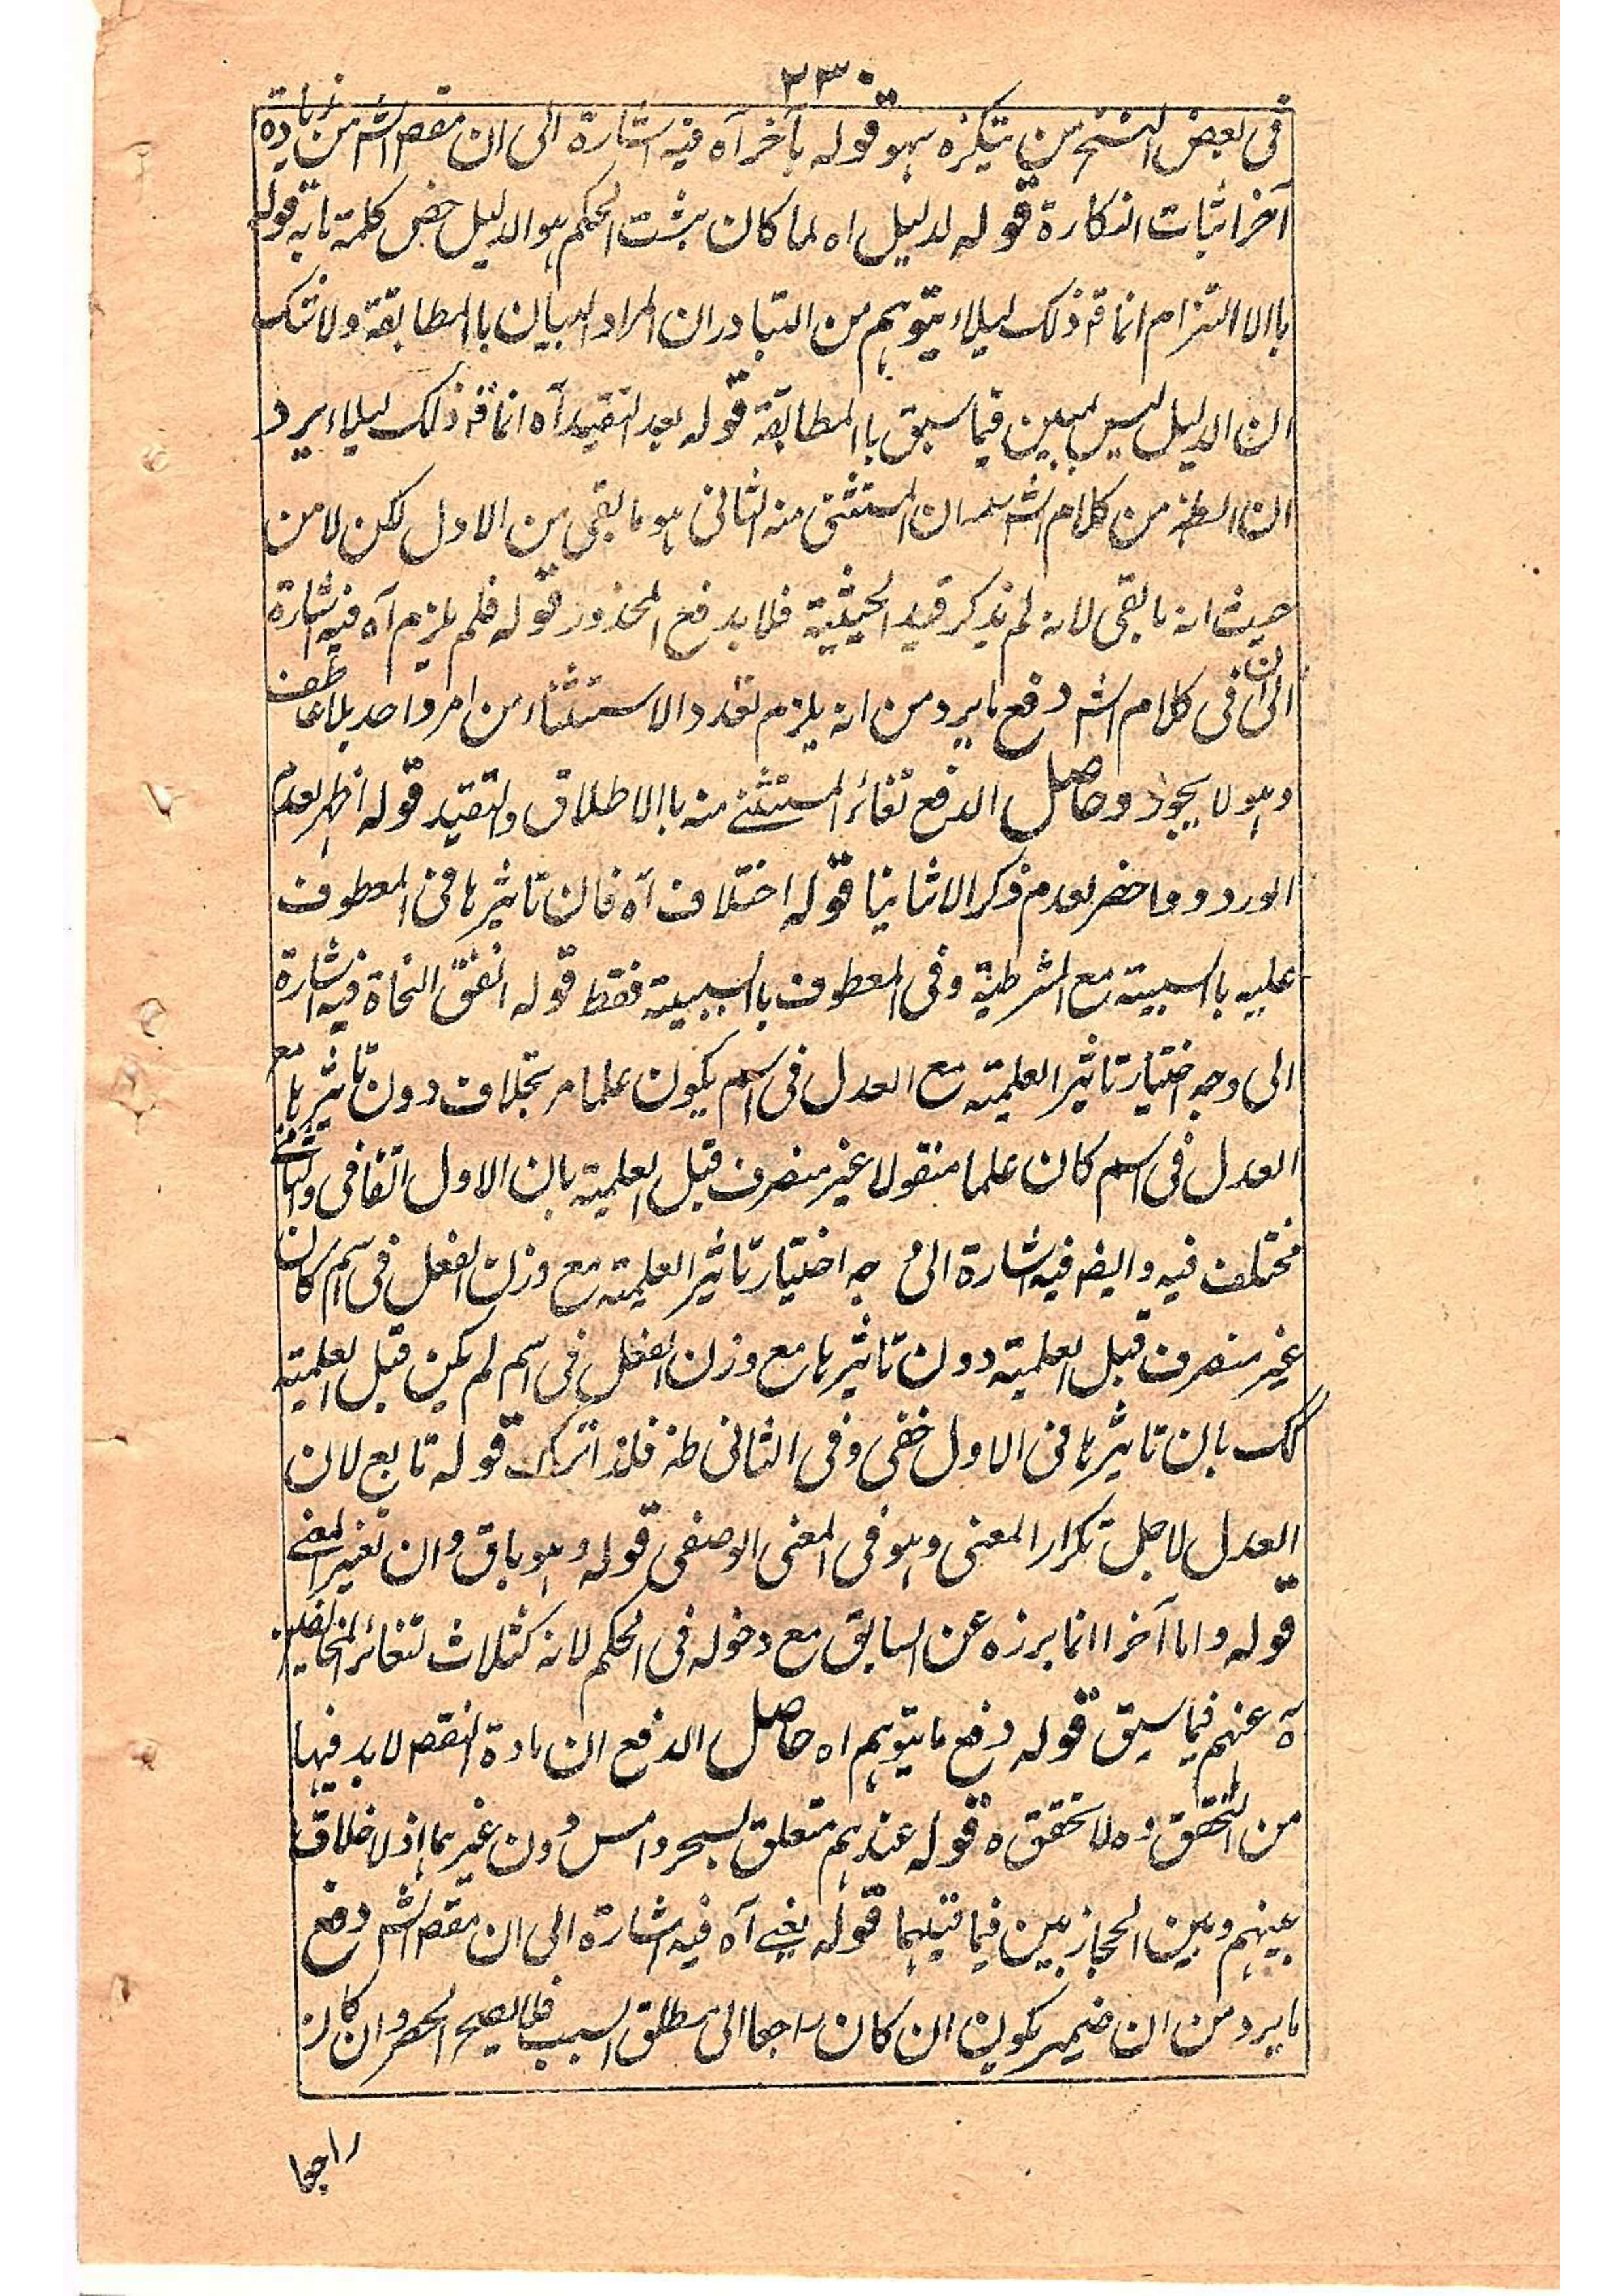 ٢٣٠
فى بعض النسخ من تنكيره سهو قوله بآخر آه فيه اشارة الى ان مقص الشه من زيادة
آخر اثبات النكارة قوله لدليل اه لما كان مثبت الحكم هو الدليل خص كلمة تا به قوله
باالا التزام انما قه ذلك ليلاء يتوهم من التبادر ان المراد البيان باالمطابقة ولا شك
ان الدليل ليس بمبين فيما سبق باالمطابقة قوله بعد التقييد آه انما قه ذلك ليلاء يرد
ان الظه من كلام الشه ان المستثنى منه الثانى هو ما بقى من الاول لكن لا من
حيث انه ما بقى لانه لم يذكر قيد الحيثية فلا يدفع المحذور قوله فلم يلزم آه فيه اشارة
الى ان فى كلام الشه دفع ما يرد من انه يلزم تعدد الاستثناء من امر واحد بلا عاطف
وهو لا يجوز وحاصل الدفع تغائر المستثنى منه باالاطلاق والتقييد قوله اظهر لعدم
الورود وما حضر لعدم ذكر الا ثانيا قوله اختلاف آه فان تاثيرها فى المعطوف
عليه باالسببية مع الشرطية وفى المعطوف باالسببية فقط قوله اتفق النحاة فيه اشارة
الى وجه اختيار تاثير العلمية مع العدل فى اسم يكون علما مرتجلا ف دون تاثيرها مع
العدل فى اسم كان علما منقولا غير منصرف قبل العلمية بان الاول اتفاقى والثانى
مختلف فيه وايضه فيه اشارة الى وجه اختيار تاثير العلمية مع وزن الفعل فى اسم كان
غير منصرف قبل العلمية دون تاثيرها مع وزن الفعل فى اسم لم يكن قبل العلمية
كك بان تاثيرها فى الاول خفى وفى الثانى ظه فلذا ترك قوله تابع لان
العدل لاجل تكرار المعنى وهو فى المعنى الوصفى قوله وهو باق وان تغير المعنى
قوله واما آخر انما برزه عن السابق مع دخوله فى الحكم لانه كثلاث لتغائر المخالفين
آه عنهم فيما سبق قوله دفع ما يتوهم اه حاصل الدفع ان مادة النقص لا بد فيها
من التحقق وه لا تحقق ه قوله عندهم متعلق بسحر وامس دون غيرهما اذ لا خلاف
بينهم وبين الحجازيين فيما قبلهما قوله يعنى آه فيه اشارة الى ان مقص الشه دفع
ما يرد من ان ضمير يكون ان كان راجعا الى مطلق السبب فما يصح الحصر وان كان
راجعا